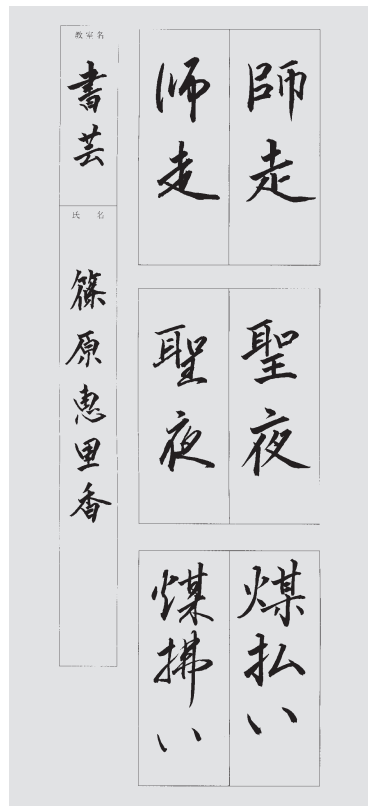 師走
師走
聖夜
聖夜
煤払い
煤拂い
教室名
書芸
氏名
篠原恵里香